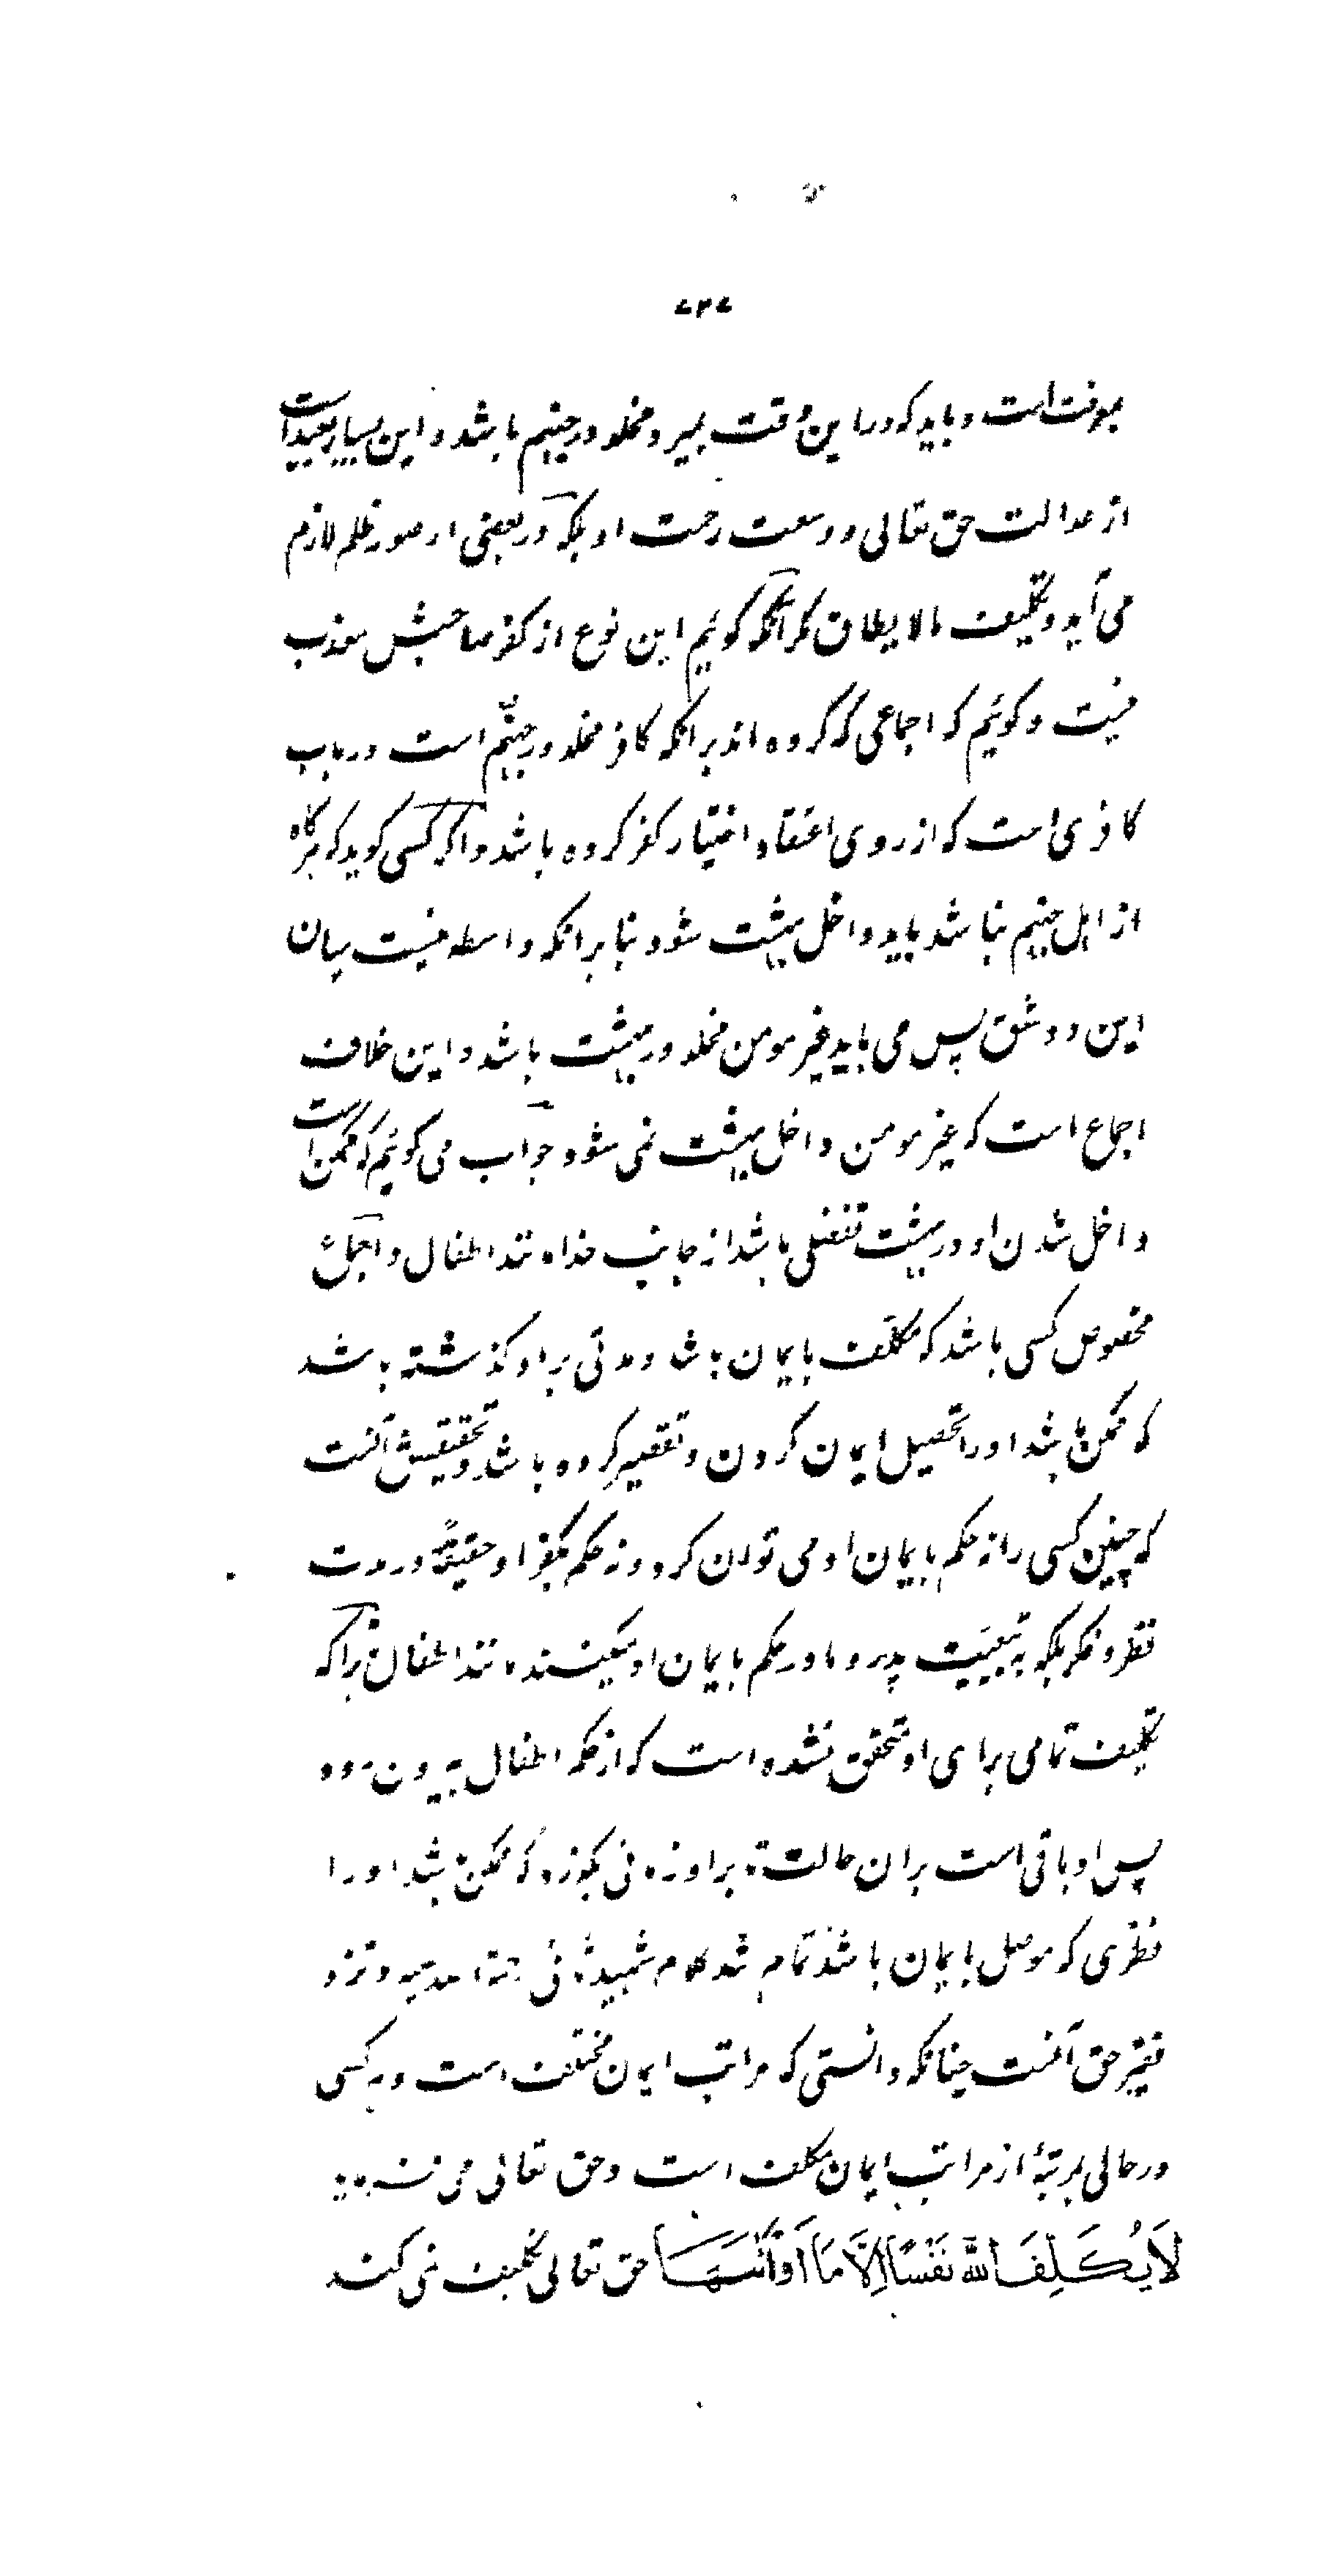 ۷۳۷
موقت است و باید که در این وقت بمیرد و مخلد در جهنم باشد و این بسیار بعید است
از عدالت حق تعالی و وسعت رحمت او بلکه در بعضی از صور ظلم لازم
می آید و تکلیف مالا یطاق مگر آنکه گوئیم این نوع از کفر صاحبش معذب
نیست و گوئیم که اجماعی که کرده اند بر انکه کافر مخلد در جهنم است در باب
کافری است که از روی اعتقاد اختیار کفر کرده باشد و اگر کسی گوید که هرگاه
از اهل جهنم نباشد باید داخل بهشت شود بنا بر انکه واسطه نیست میان
این دو شق پس می باید غیر مومن مخلد در بهشت باشد و این خلاف
اجماع است که غیر مومن داخل بهشت نمی شود جواب می گوئیم که ممکن است
داخل شدن او در بهشت تفضلی باشد از جانب خدا مانند اطفال و اجماع
مخصوص کسی باشد که مکلف بایمان باشد و مدتی بر او گذشته باشد
که ممکن باشد او را تحصیل ایمان کردن و تقصیر کرده باشد و تحقیقش آنست
که چنین کسی را نه حکم بایمان او می توان کرد و نه حکم بکفر او حقیقةً در مدت
نظر و فکر بلکه به تبعیت پدر و مادر حکم بایمان او میکنند مانند اطفال زیرا که
تکلیف تمامی برای او متحقق نشده است که از حکم اطفال بیرون رود
پس او باقی است بران حالت تا بر او زمانی بگذرد که ممکن باشد او را
نظری که موصل بایمان باشد تمام شد کلام شهید ثانی رحمة الله علیه و نزد
فقیر حق آنست چنانکه دانستی که مراتب ایمان مختلف است و هر کسی
در حالی بمرتبهٔ از مراتب ایمان مکلف است و حق تعالی می فرماید
لَا يُكَلِّفُ اللَّهُ نَفْسًا إِلَّا مَا آتَاهَا حق تعالی تکلیف نمی کند